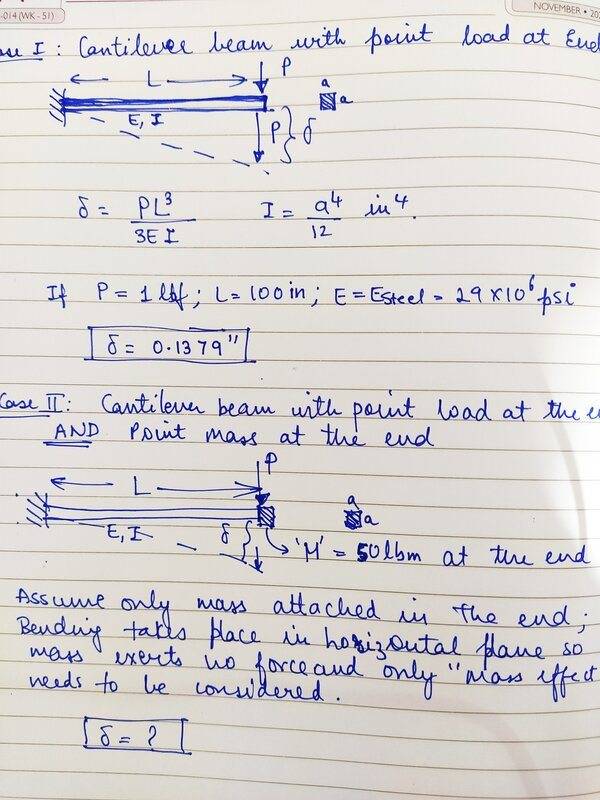 -014 (WK - 51)
NOVEMBER • 20
ase I : Cantilever beam with point load at End
L
P
a
a
E, I
P
δ
δ = PL³ / 3EI
I = a⁴ / 12 in⁴.
If P = 1 lbf ; L = 100 in ; E = Esteel = 29 × 10⁶ psi
δ = 0.1379"
Case II : Cantilever beam with point load at the e
AND Point mass at the end
P
L
a
a
E, I
δ
'M' = 50 lbm at the end
Assume only mass attached in the end ;
Bending takes place in horizontal plane so
mass exerts no force and only "mass effect
needs to be considered.
δ = ?